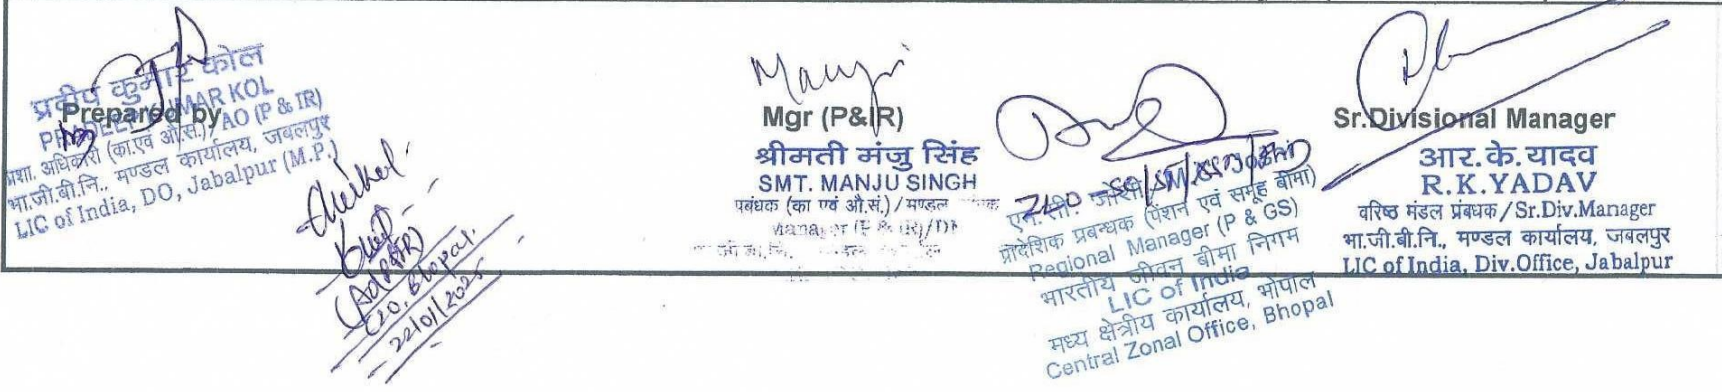 प्रदीप कुमार कोल
PRADEEP KUMAR KOL
Prepared by
प्रशा. अधिकारी (का.एवं औ.सं.)/AO (P & IR)
भा.जी.बी.नि., मण्डल कार्यालय, जबलपुर
LIC of India, DO, Jabalpur (M.P.)
(AO(P&IR)
CZO, Bhopal.
22/01/2025
Manju
Mgr (P&IR)
श्रीमती मंजु सिंह
SMT. MANJU SINGH
पबंधक (का एवं औ.सं.)/मण्डल
Manager (P & IR)/
एम.सी. जोशी/M.C. Joshi
प्रादेशिक प्रबन्धक (पेंशन एवं समूह बीमा)
Regional Manager (P & GS)
भारतीय जीवन बीमा निगम
LIC of India
मध्य क्षेत्रीय कार्यालय, भोपाल
Central Zonal Office, Bhopal
Sr.Divisional Manager
आर.के.यादव
R.K.YADAV
वरिष्ठ मंडल प्रबंधक/Sr.Div.Manager
भा.जी.बी.नि., मण्डल कार्यालय, जबलपुर
LIC of India, Div.Office, Jabalpur